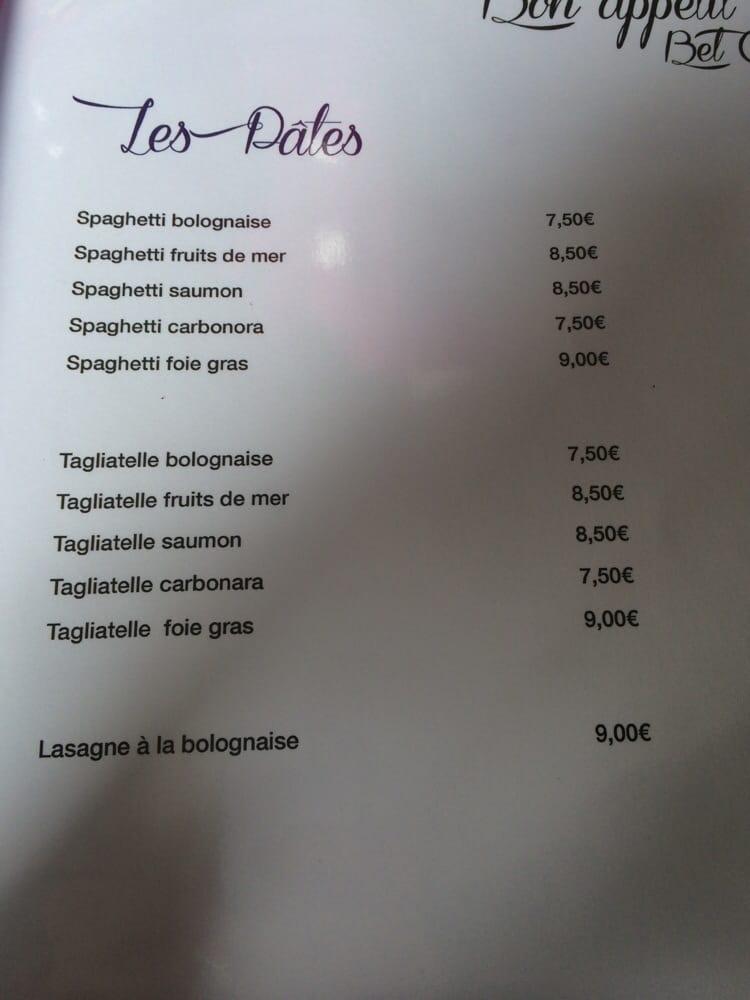 Bon appétit
Bet
Les Pâtes
Spaghetti bolognaise 7,50€
Spaghetti fruits de mer 8,50€
Spaghetti saumon 8,50€
Spaghetti carbonora 7,50€
Spaghetti foie gras 9,00€
Tagliatelle bolognaise 7,50€
Tagliatelle fruits de mer 8,50€
Tagliatelle saumon 8,50€
Tagliatelle carbonara 7,50€
Tagliatelle foie gras 9,00€
Lasagne à la bolognaise 9,00€